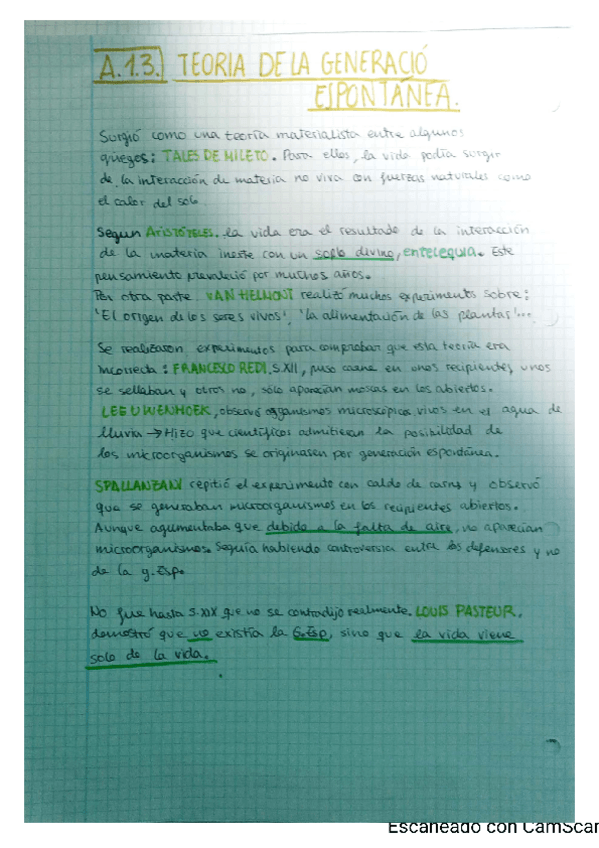 A.1.3. TEORIA DE LA GENERACIÓ
ESPONTÁNEA.
Surgió como una teoría materialista entre algunos
griegos: TALES DE MILETO. Para ellos, la vida podía surgir
de la interacción de materia no viva con fuerzas naturales como
el calor del sol.
Segun ARISTÓTELES. la vida era el resultado de la interacción
de la materia inerte con un soplo divino, entelequia. Este
pensamiento prevaleció por muchos años.
Por otra parte VAN HELMONT realizó muchos experimentos sobre:
'El origen de los seres vivos', 'la alimentación de las plantas'...
Se realizaron experimentos para comprobar que esta teoría era
incorrecta: FRANCESCO REDI. S.XII, puso carne en unos recipientes, unos
se sellaban y otros no, sólo aparecían moscas en los abiertos.
LEEUWENHOEK, observó organismos microscópicos vivos en el agua de
lluvia → Hizo que científicos admitieran la posibilidad de
los microorganismos se originasen por generación espontánea.
SPALLANZANI repitió el experimento con caldo de carne y observó
que se generaban microorganismos en los recipientes abiertos.
Aunque agumentaba que debido a la falta de aire, no aparecían
microorganismos. Seguía habiendo controversia entre los defensores y no
de la g. Esp.
No fue hasta S.XIX que no se contradijo realmente. LOUIS PASTEUR,
demostró que no existía la G.Esp, sino que la vida viene
solo de la vida.
Escaneado con CamScan